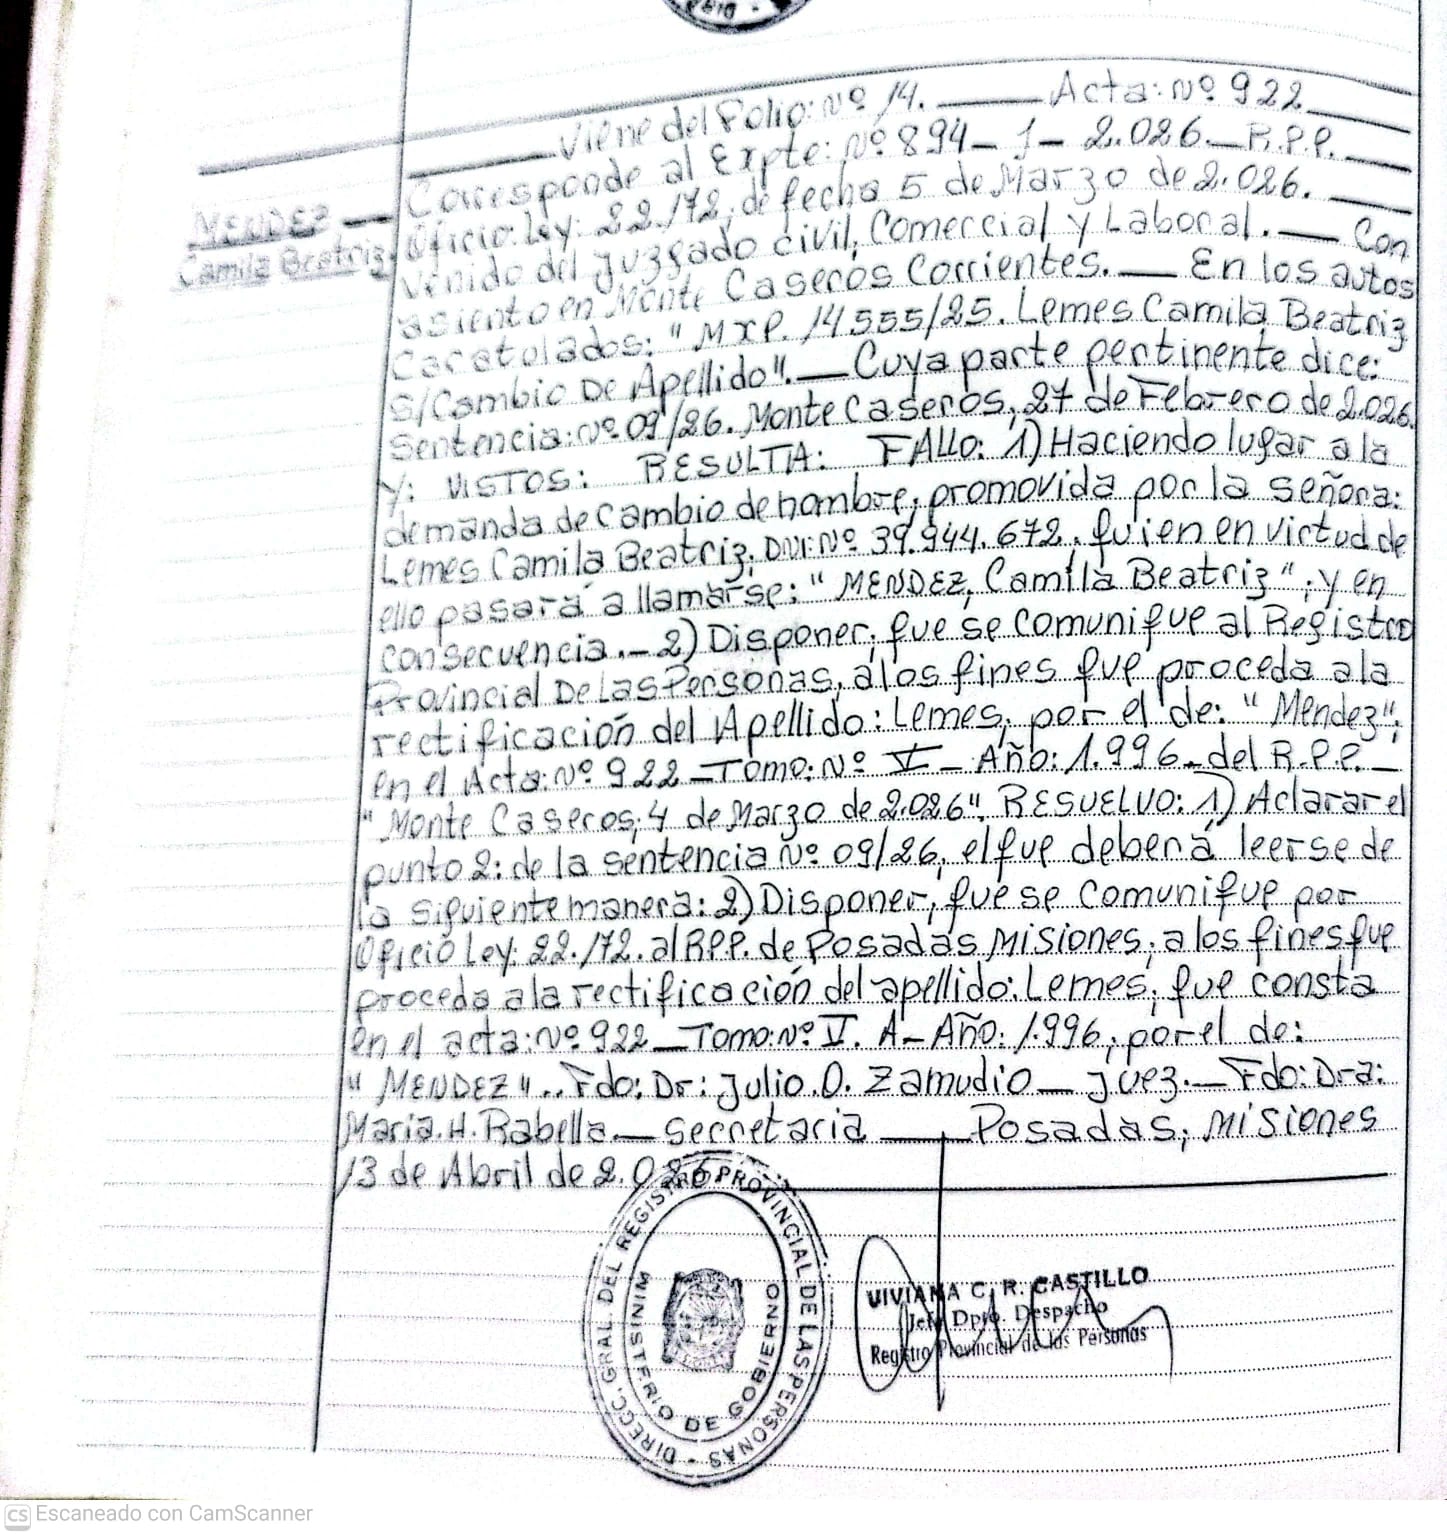 Viene del Folio: Nº 14. Acta: Nº 922
Corresponde al Expte: Nº 894 - 1 - 2.026 - R.P.P.
MENDEZ — Oficio: Ley: 22.172, de fecha 5 de Marzo de 2.026.
Camila Beatriz. Venido del Juzgado Civil, Comercial y Laboral. — Con
asiento en Monte Caseros Corrientes. — En los autos
Caratulados: "MXP. 14555/25. Lemes Camila Beatriz
S/Cambio De Apellido". — Cuya parte pertinente dice:
Sentencia: Nº 09/26. Monte Caseros, 27 de Febrero de 2.026.
Y: VISTOS: RESULTA: FALLO: 1) Haciendo lugar a la
demanda de Cambio de nombre, promovida por la señora:
Lemes Camila Beatriz, DNI: Nº 39.944.672, quien en virtud de
ello pasará a llamarse: "MENDEZ, Camila Beatriz"; y en
consecuencia. - 2) Disponer, que se comunique al Registro
Provincial De Las Personas, a los fines que proceda a la
rectificación del Apellido: Lemes, por el de: "Mendez",
en el Acta: Nº 922 - Tomo: Nº V - Año: 1.996 - del R.P.P. -
"Monte Caseros, 4 de Marzo de 2.026". RESUELVO: 1) Aclarar el
punto 2: de la sentencia Nº 09/26, el que deberá leerse de
la siguiente manera: 2) Disponer, que se comunique por
Oficio Ley: 22.172. al R.P.P. de Posadas Misiones, a los fines que
proceda a la rectificación del apellido: Lemes, que consta
en el acta: Nº 922 - Tomo: Nº V. A - Año: 1.996, por el de:
"MENDEZ".. Fdo: Dr: Julio O. Zamudio - Juez. - Fdo: Dra:
Maria. H. Rabella. - Secretaria — Posadas, Misiones
13 de Abril de 2.026
DIRECC. GRAL. DEL REGISTRO PROVINCIAL DE LAS PERSONAS -
MINISTERIO DE GOBIERNO
VIVIANA C. R. CASTILLO
Jefe Dpto. Despacho
Registro Provincial de las Personas
CS Escaneado con CamScanner